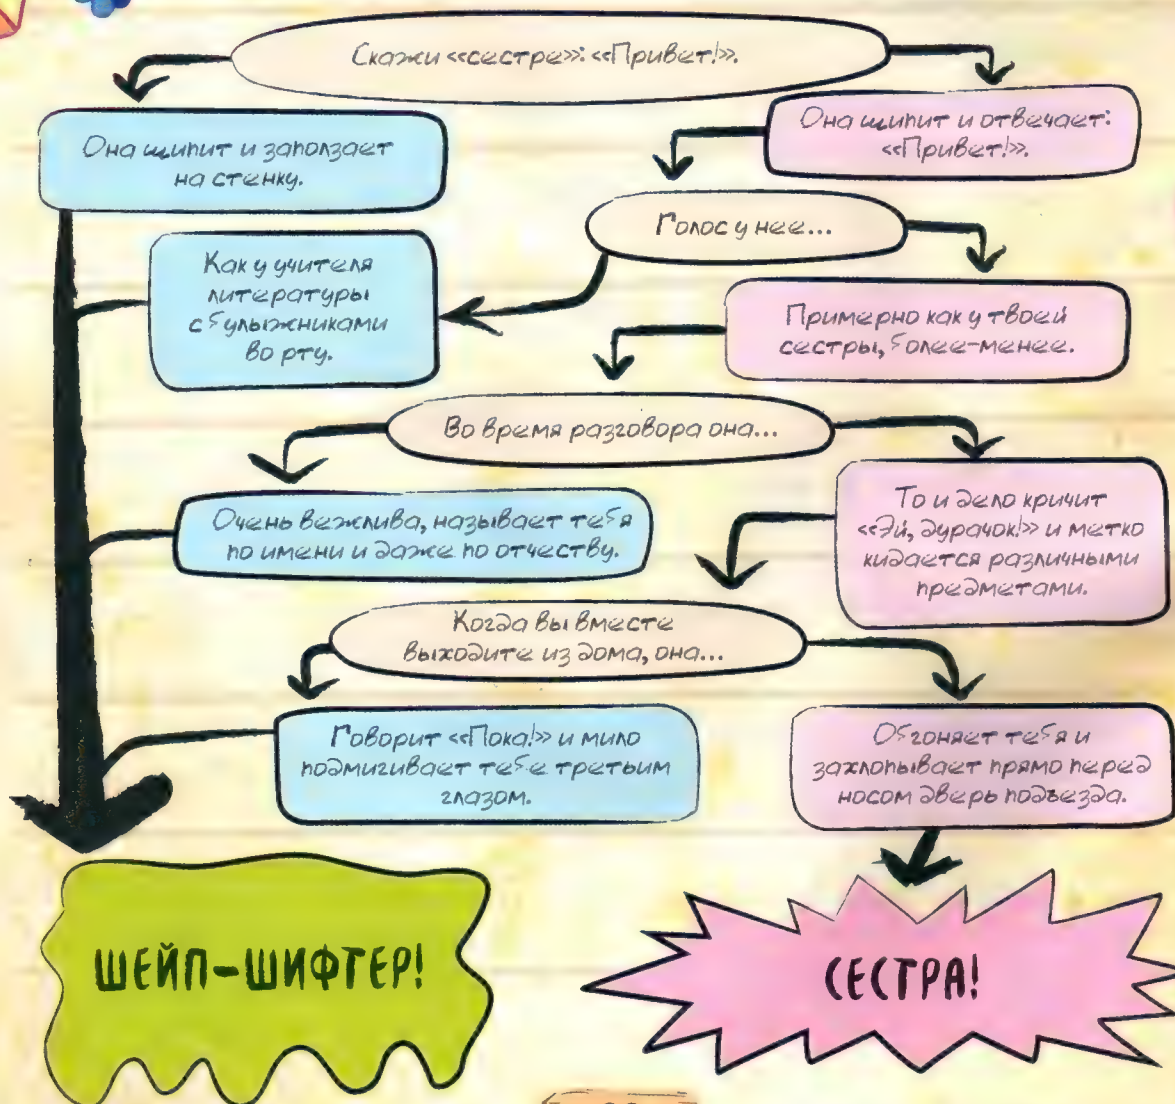 Скажи «сестре»: «Привет!».
Она шипит и заползает
на стенку.
Она шипит и отвечает:
«Привет!».
Голос у нее...
Как у учителя
литературы
с булыжниками
во рту.
Примерно как у твоей
сестры, более-менее.
Во время разговора она...
Очень вежлива, называет тебя
по имени и даже по отчеству.
То и дело кричит
«Эй, дурачок!» и метко
кидается различными
предметами.
Когда вы вместе
выходите из дома, она...
Говорит «Пока!» и мило
подмигивает тебе третьим
глазом.
Обгоняет тебя и
захлопывает прямо перед
носом дверь подъезда.
ШЕЙП-ШИФТЕР!
СЕСТРА!